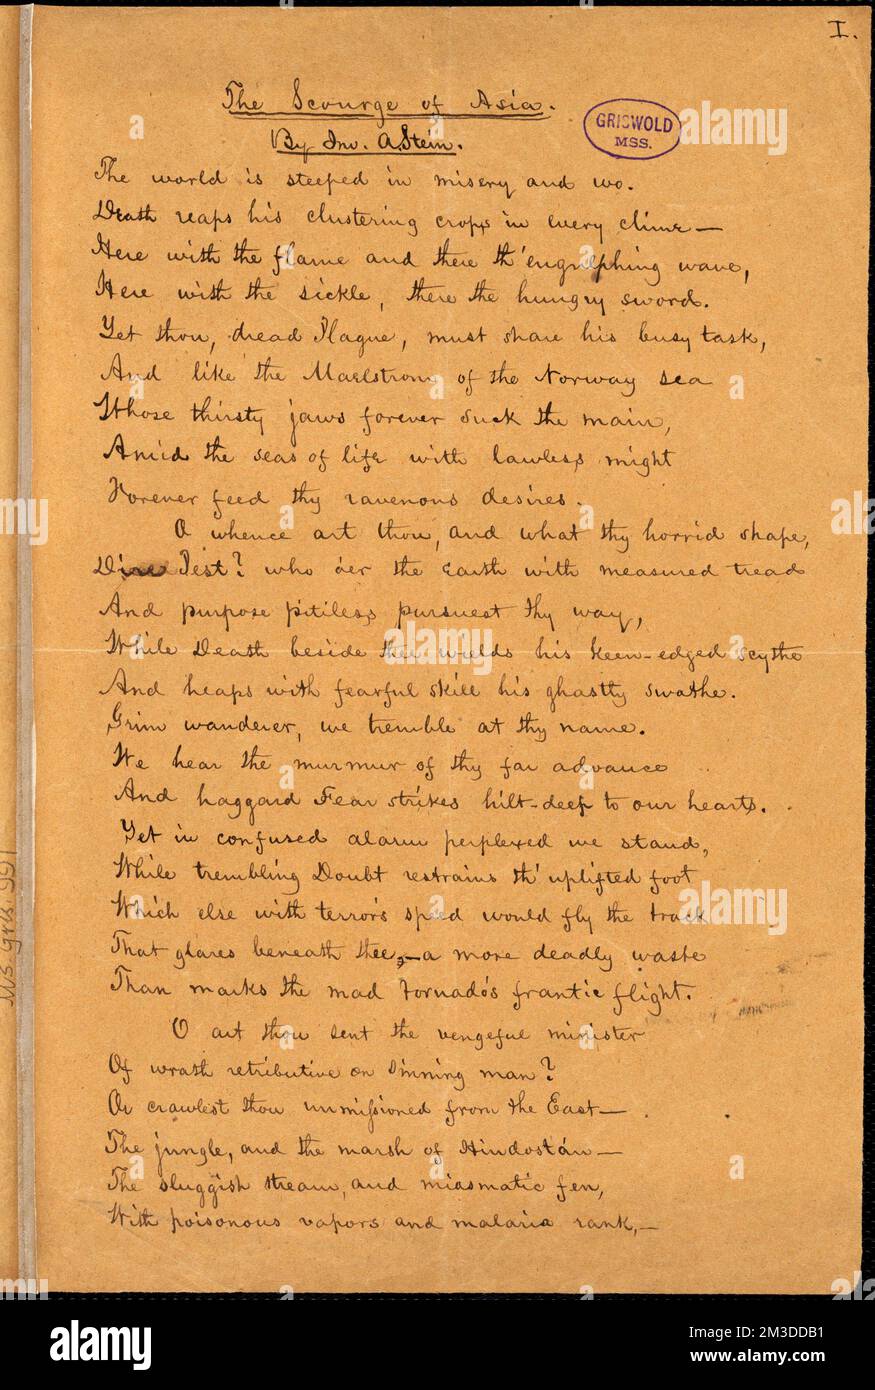 I.
The Scourge of Asia.
GRISWOLD
MSS.
By Jno. A. Stein.
The world is steeped in misery and wo.
Death reaps his clustering crops in every clime—
Here with the flame and there th' engulphing wave,
Here with the sickle, there the hungry sword.
Yet thou, dread Plague, must share his busy task,
And like the Maelstrom of the Norway sea
Whose thirsty jaws forever suck the main,
Amid the seas of life with lawless might
Forever feed thy ravenous desires.
O whence art thou, and what thy horrid shape,
Dire Pest? who o'er the Earth with measured tread
And purpose pitiless pursuest thy way,
While Death beside thee wields his keen-edged scythe
And heaps with fearful skill his ghastly swathe.
Grim wanderer, we tremble at thy name.
We hear the murmur of thy far advance
And haggard Fear strikes hilt-deep to our hearts.
Yet in confused alarm perplexed we stand,
While trembling Doubt restrains th' uplifted foot
Which else with terror's speed would fly the track
That glares beneath thee,—a more deadly waste
Than marks the mad Tornado's frantic flight.
O art thou sent the vengeful minister
Of wrath retributive on sinning man?
Or crawlest thou unmissioned from the East—
The jungle, and the marsh of Hindostán—
The sluggish stream, and miasmatic fen,
With poisonous vapors and malaria rank,—
Ms. Gris. 991
alamy
Image ID: 2M3DDB1
www.alamy.com